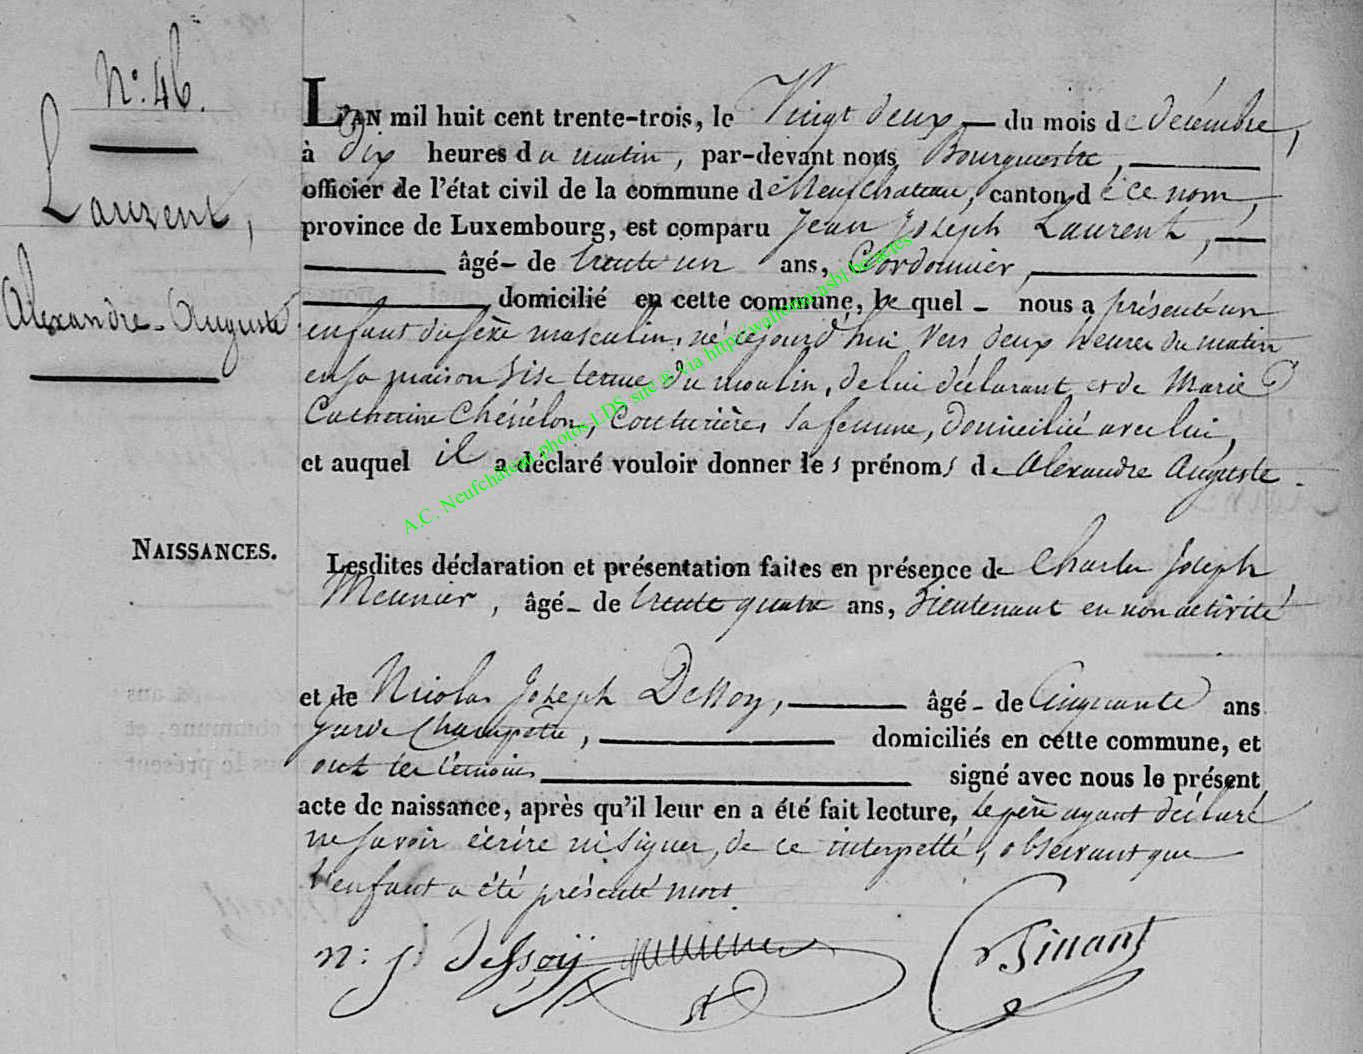 N.° 46.
Laurent,
Alexandre-Auguste
NAISSANCES.
L'AN mil huit cent trente-trois, le Vingt deux du mois de décembre,
à dix heures du matin, par-devant nous Bourgmestre,
officier de l'état civil de la commune de Neufchateau, canton de ce nom,
province de Luxembourg, est comparu Jean Joseph Laurent,
âgé de trente un ans, Cordonnier,
domicilié en cette commune, lequel nous a présenté un
enfant du sexe masculin, né cejourd'hui vers deux heures du matin
en sa maison sise terme du moulin, de lui déclarant et de Marie
Catherine Chénélon, Couturière, sa femme, domiciliée avec lui,
et auquel il a déclaré vouloir donner les prénoms de Alexandre Auguste.
Lesdites déclaration et présentation faites en présence de Charles Joseph
Meunier, âgé de trente quatre ans, Lieutenant en non activité
et de Nicolas Joseph Dessoy, âgé de Cinquante ans
garde Champêtre, domiciliés en cette commune, et
ont les témoins signé avec nous le présent
acte de naissance, après qu'il leur en a été fait lecture, le père ayant déclaré
ne savoir écrire ni signer, de ce interpellé, observant que
l'enfant a été présenté mort.
n: j Dessoÿ
A.C. Neufchateau photos LDS site & via http://wallonica